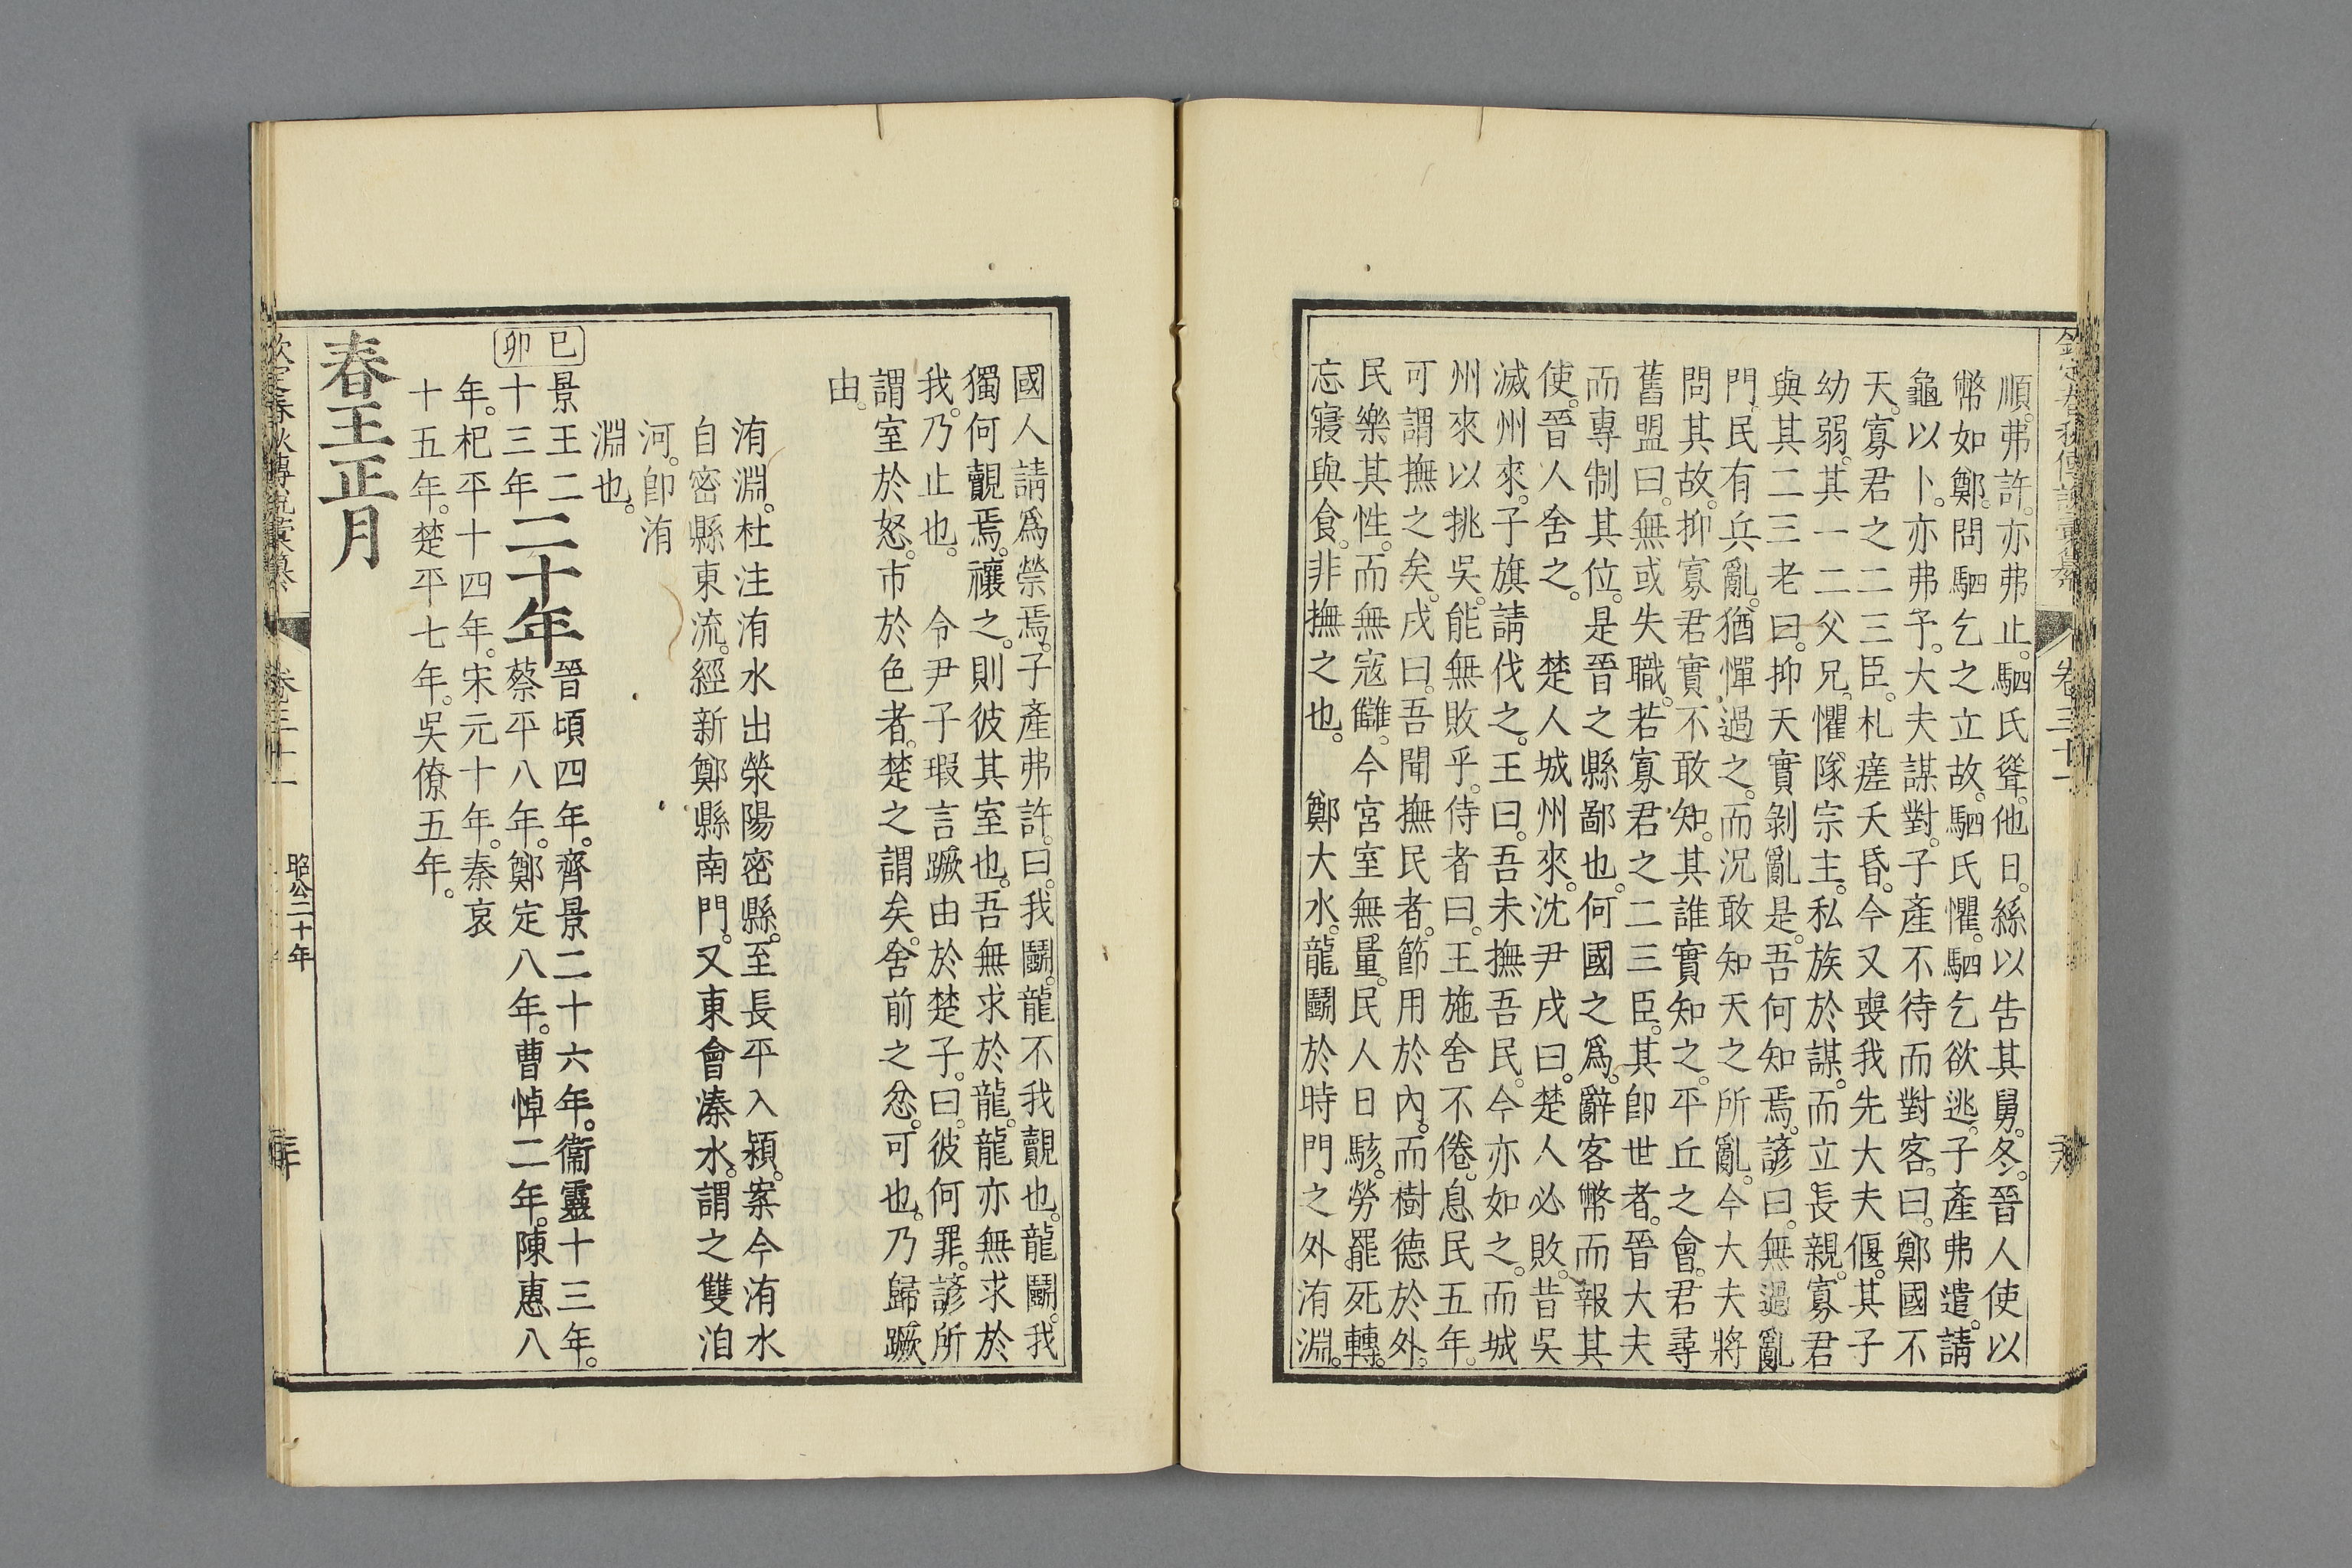 欽定春秋傳說彙纂 卷三十一
順。弗許。亦弗止。駟氏聳。他日。絲以告其舅。冬。晉人使以
幣如鄭。問駟乞之立故。駟氏懼。駟乞欲逃。子產弗遣。請
龜以卜。亦弗予。大夫謀對。子產不待而對客。曰。鄭國不
天。寡君之二三臣。札瘥夭昏。今又喪我先大夫偃。其子
幼弱。其一二父兄。懼隊宗主。私族於謀。而立長親。寡君
與其二三老曰。抑天實剝亂是。吾何知焉。諺曰。無過亂
門。民有兵亂。猶憚過之。而況敢知天之所亂。今大夫將
問其故。抑寡君實不敢知。其誰實知之。平丘之會。君尋
舊盟曰。無或失職。若寡君之二三臣。其卽世者。晉大夫
而專制其位。是晉之縣鄙也。何國之爲。辭客幣而報其
使。晉人舍之。　楚人城州來。沈尹戌曰。楚人必敗。昔吳
滅州來。子旗請伐之。王曰。吾未撫吾民。今亦如之。而城
州來以挑吳。能無敗乎。侍者曰。王施舍不倦。息民五年。
可謂撫之矣。戌曰。吾聞撫民者。節用於內。而樹德於外。
民樂其性。而無寇讎。今宮室無量。民人日駭。勞罷死轉。
忘寢與食。非撫之也。　鄭大水。龍鬭於時門之外洧淵。
國人請爲禜焉。子產弗許。曰。我鬭。龍不我覿也。龍鬭。我
獨何覿焉。禳之。則彼其室也。吾無求於龍。龍亦無求於
我。乃止也。　令尹子瑕言蹶由於楚子。曰。彼何罪。諺所
謂室於怒。市於色者。楚之謂矣。舍前之忿。可也。乃歸蹶
由。
洧淵。杜注洧水出滎陽密縣。至長平入潁。案今洧水
自密縣東流。經新鄭縣南門。又東會溱水。謂之雙洎
河。卽洧
淵也。
己卯
景王二十三年
二十年
晉頃四年。齊景二十六年。衞靈十三年。
蔡平八年。鄭定八年。曹悼二年。陳惠八
年。杞平十四年。宋元十年。秦哀
十五年。楚平七年。吳僚五年。
春王正月
欽定春秋傳說彙纂 卷三十一 昭公二十年 三十